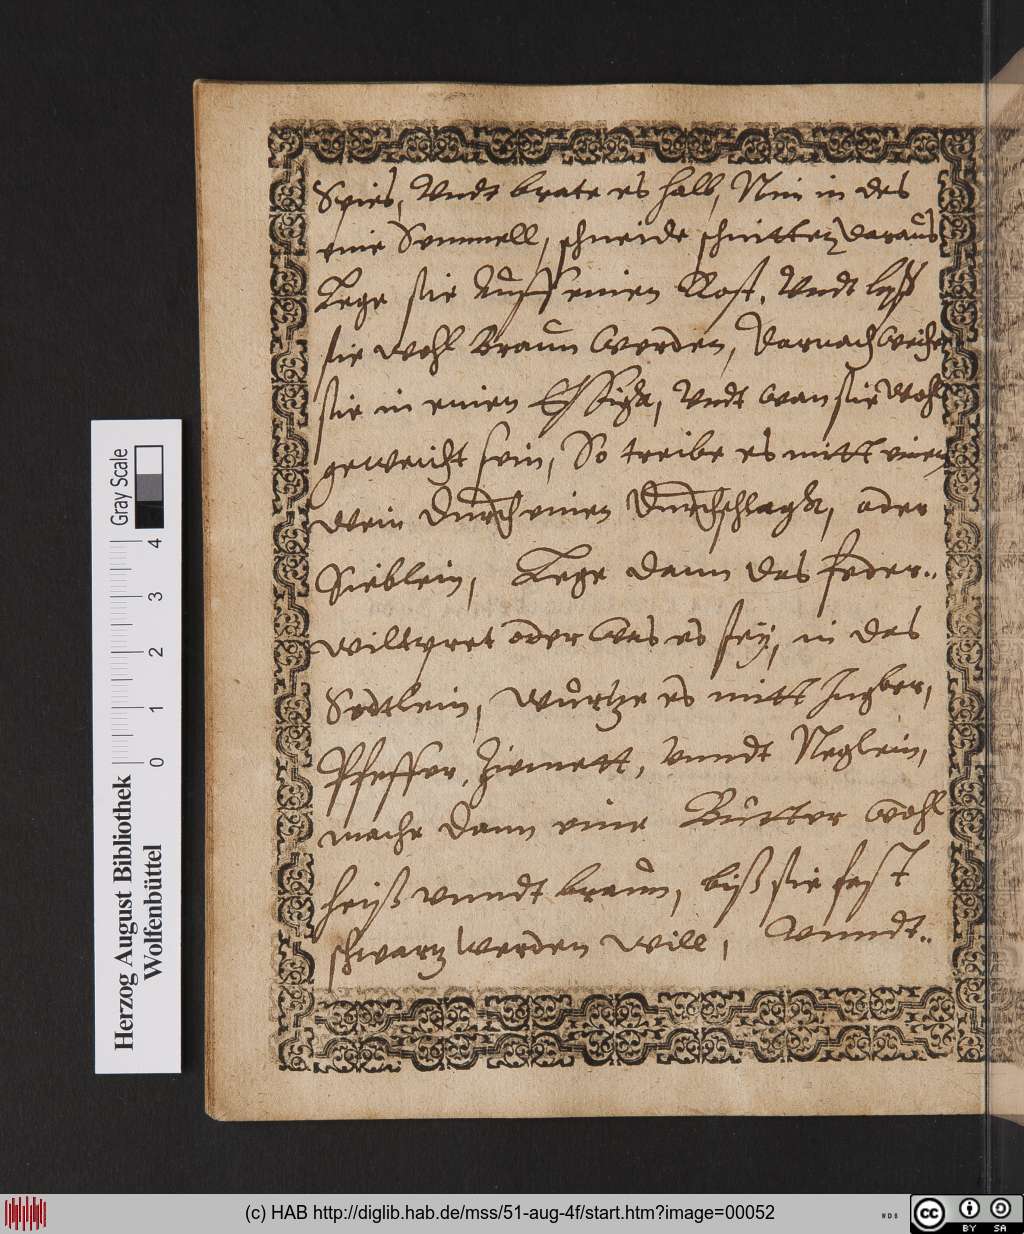 Spies, Undt brate es halb, Nim in des
eine Semmell, schneide schnitten daraus
Lege sie Auff einen Rost, Undt laß
sie wohl Braun werden, darnach weiche
sie in einen Essigk, Undt wan sie wohl
geweicht sein, So treibe es mitt einen
wein durch einen Durchschlagk, oder
Sieblein, Lege dann das feder..
wiltpret oder was es sey, in das
Sodtlein, würtze es mitt Ingber,
Pfeffer, Zimmett, vnndt Neglein,
mache dann eine Butter wohl
heiß vnndt braun, biß sie fast
schwartz werden will, Vnndt..
Herzog August Bibliothek
Wolfenbüttel
0 1 2 3 4
Gray Scale
(c) HAB http://diglib.hab.de/mss/51-aug-4f/start.htm?image=00052
WDB
cc BY SA